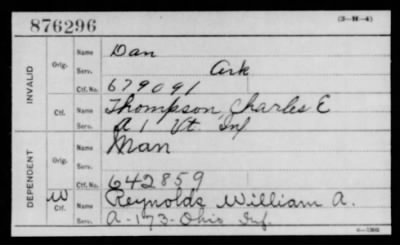 876296 (3-H-4)
INVALID
Orig.
Name Dan
Serv. Ark
Ctf. No. 679091
Ctf.
Name Thompson, Charles E
Serv. A 1 Vt. Inf
DEPENDENT
Orig.
Name Man
Serv.
Ctf. No. 642859
W Ctf.
Name Reynolds William A.
Serv. A-173-Ohio Inf.